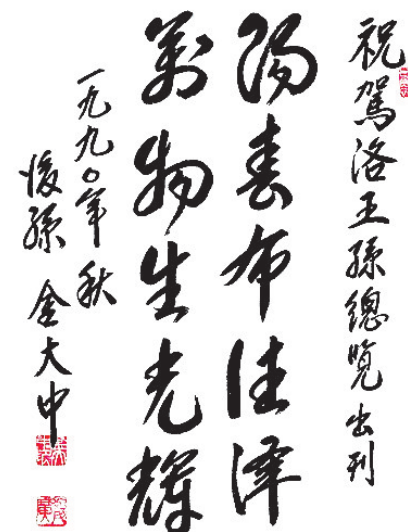 祝駕洛王孫總覽出刊
陽春布佳澤
萬物生光輝
一九九〇年秋
後孫 金大中